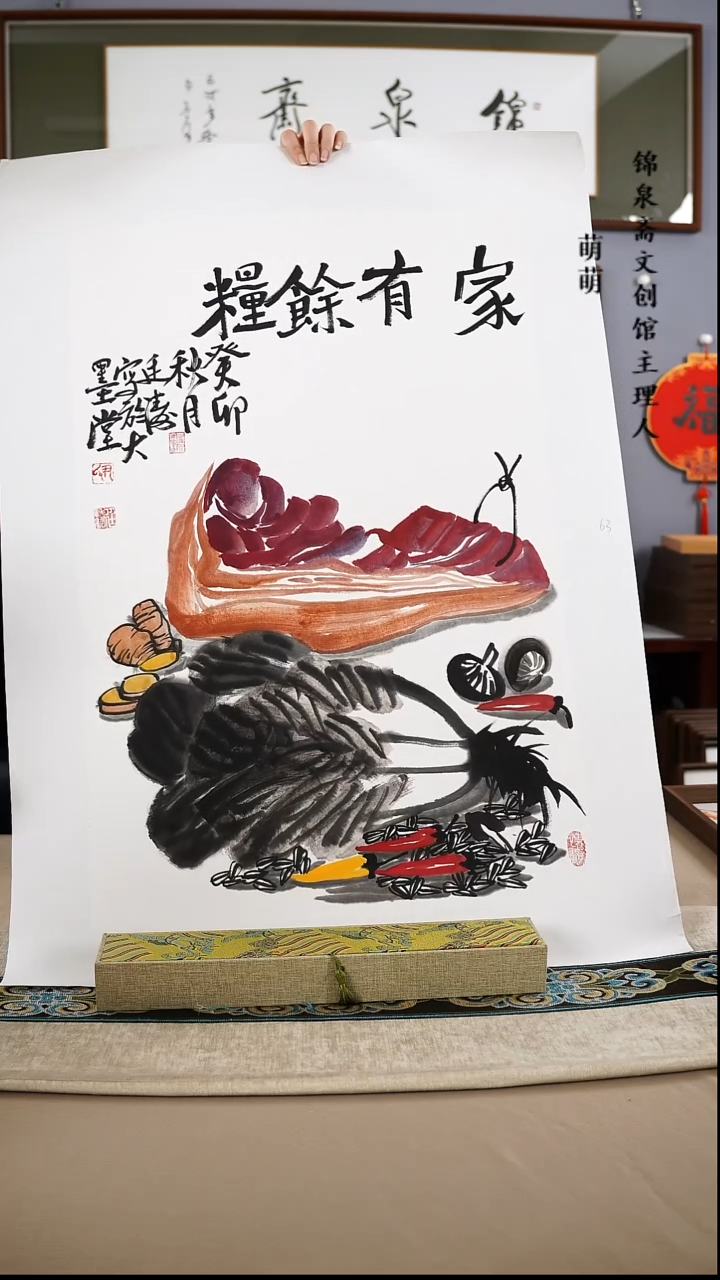 錦泉齋
锦泉斋文创馆主理人
萌萌
家有餘糧
癸卯
秋月
寫於大
墨堂
63
福